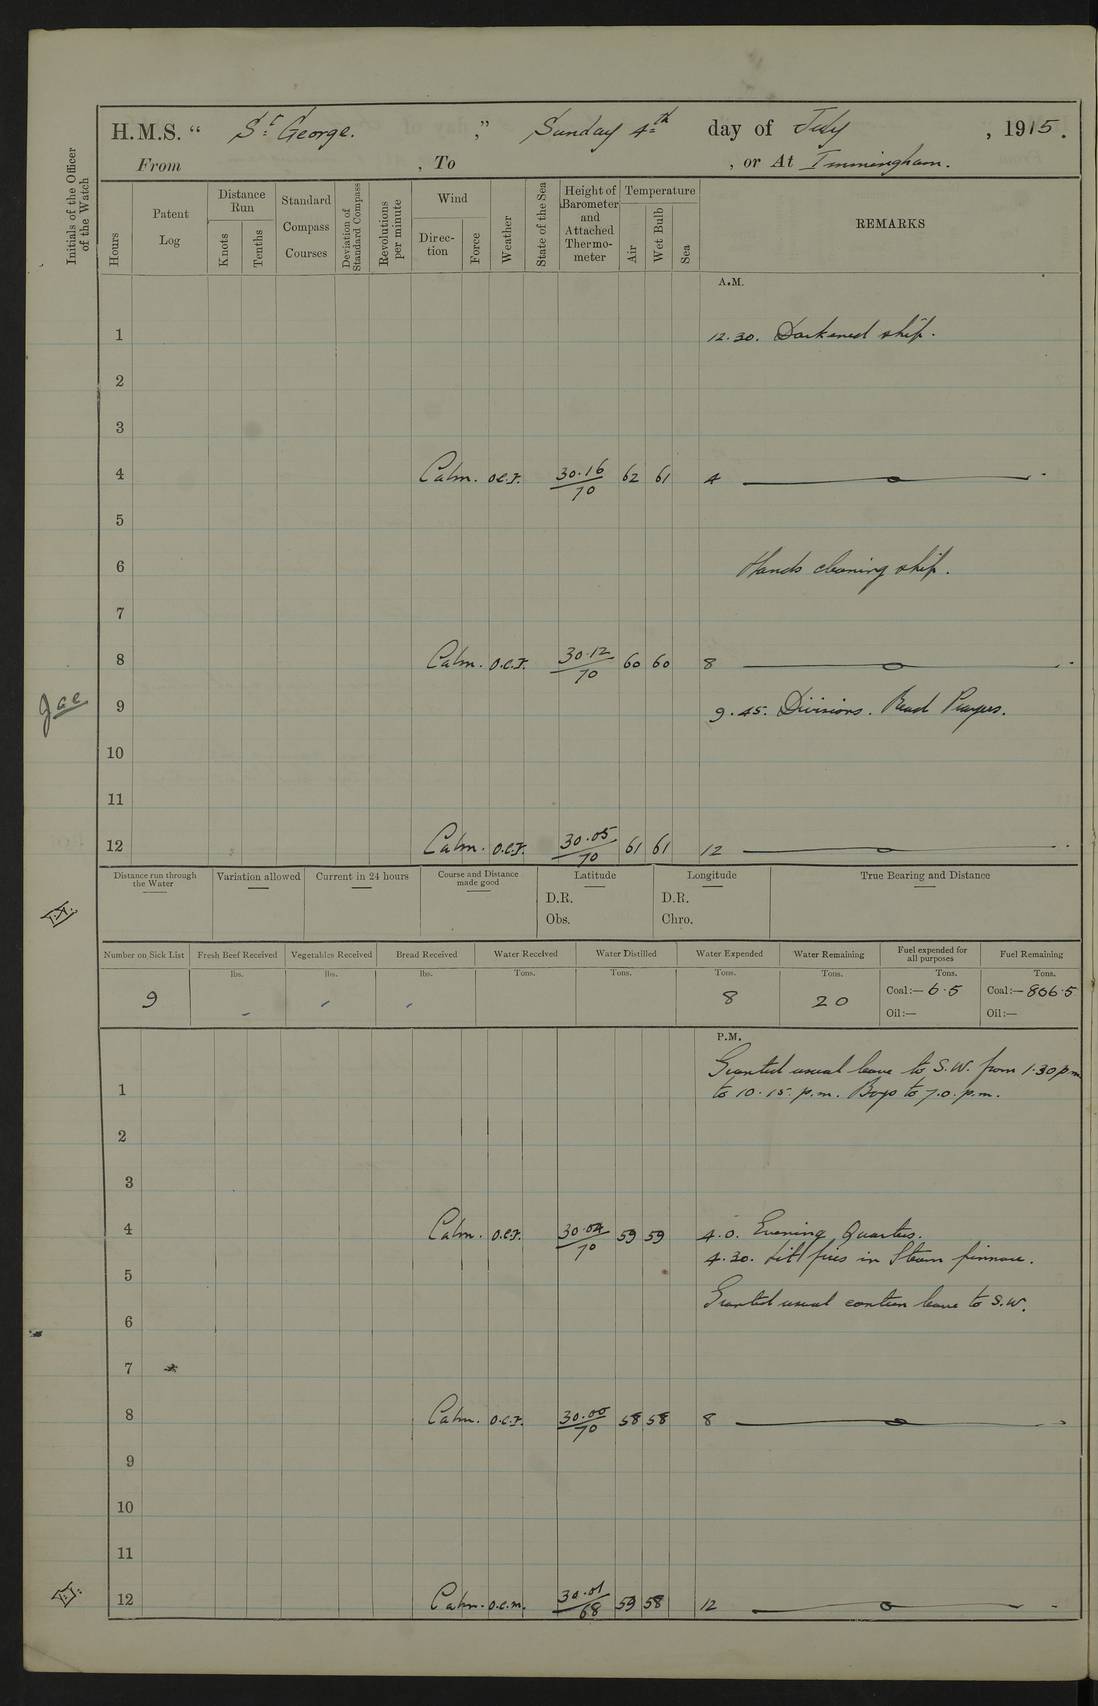 H.M.S. " St George. ," Sunday 4th day of July , 1915.
From , To , or At Immingham.
Initials of the Officer of the Watch
Hours
Patent Log
Distance Run
Knots
Tenths
Standard Compass Courses
Deviation of Standard Compass
Revolutions per minute
Wind
Direc-tion
Force
Weather
State of the Sea
Height of Barometer and Attached Thermo-meter
Temperature
Air
Wet Bulb
Sea
REMARKS
A.M.
1 12.30. Darkened ship.
2
3
4 Calm. o.c.r. 30.16/70 62 61 4
5
6 Hands cleaning ship.
7
8 Calm. o.c.r. 30.12/70 60 60 8
9 9.45. Divisions. Read Prayers.
10
11
12 Calm. o.c.r. 30.05/70 61 61 12
Distance run through the Water
Variation allowed
Current in 24 hours
Course and Distance made good
Latitude
D.R.
Obs.
Longitude
D.R.
Chro.
True Bearing and Distance
Number on Sick List
9
Fresh Beef Received
lbs.
-
Vegetables Received
lbs.
-
Bread Received
lbs.
-
Water Received
Tons.
Water Distilled
Tons.
Water Expended
Tons.
8
Water Remaining
Tons.
20
Fuel expended for all purposes
Tons.
Coal:— 6.5
Oil:—
Fuel Remaining
Tons.
Coal:— 806.5
Oil:—
P.M.
Granted usual leave to S.W. from 1.30 p.m
1 to 10.15. p.m. Boys to 7.0. p.m.
2
3
4 Calm. o.c.r. 30.04/70 59 59 4.0. Evening Quarters.
4.30. Lit fires in Steam pinnace.
5
Granted usual canteen leave to S.W.
6
7
8 Calm. o.c.r. 30.00/70 58 58 8
9
10
11
12 Calm. o.c.m. 30.01/68 59 58 12